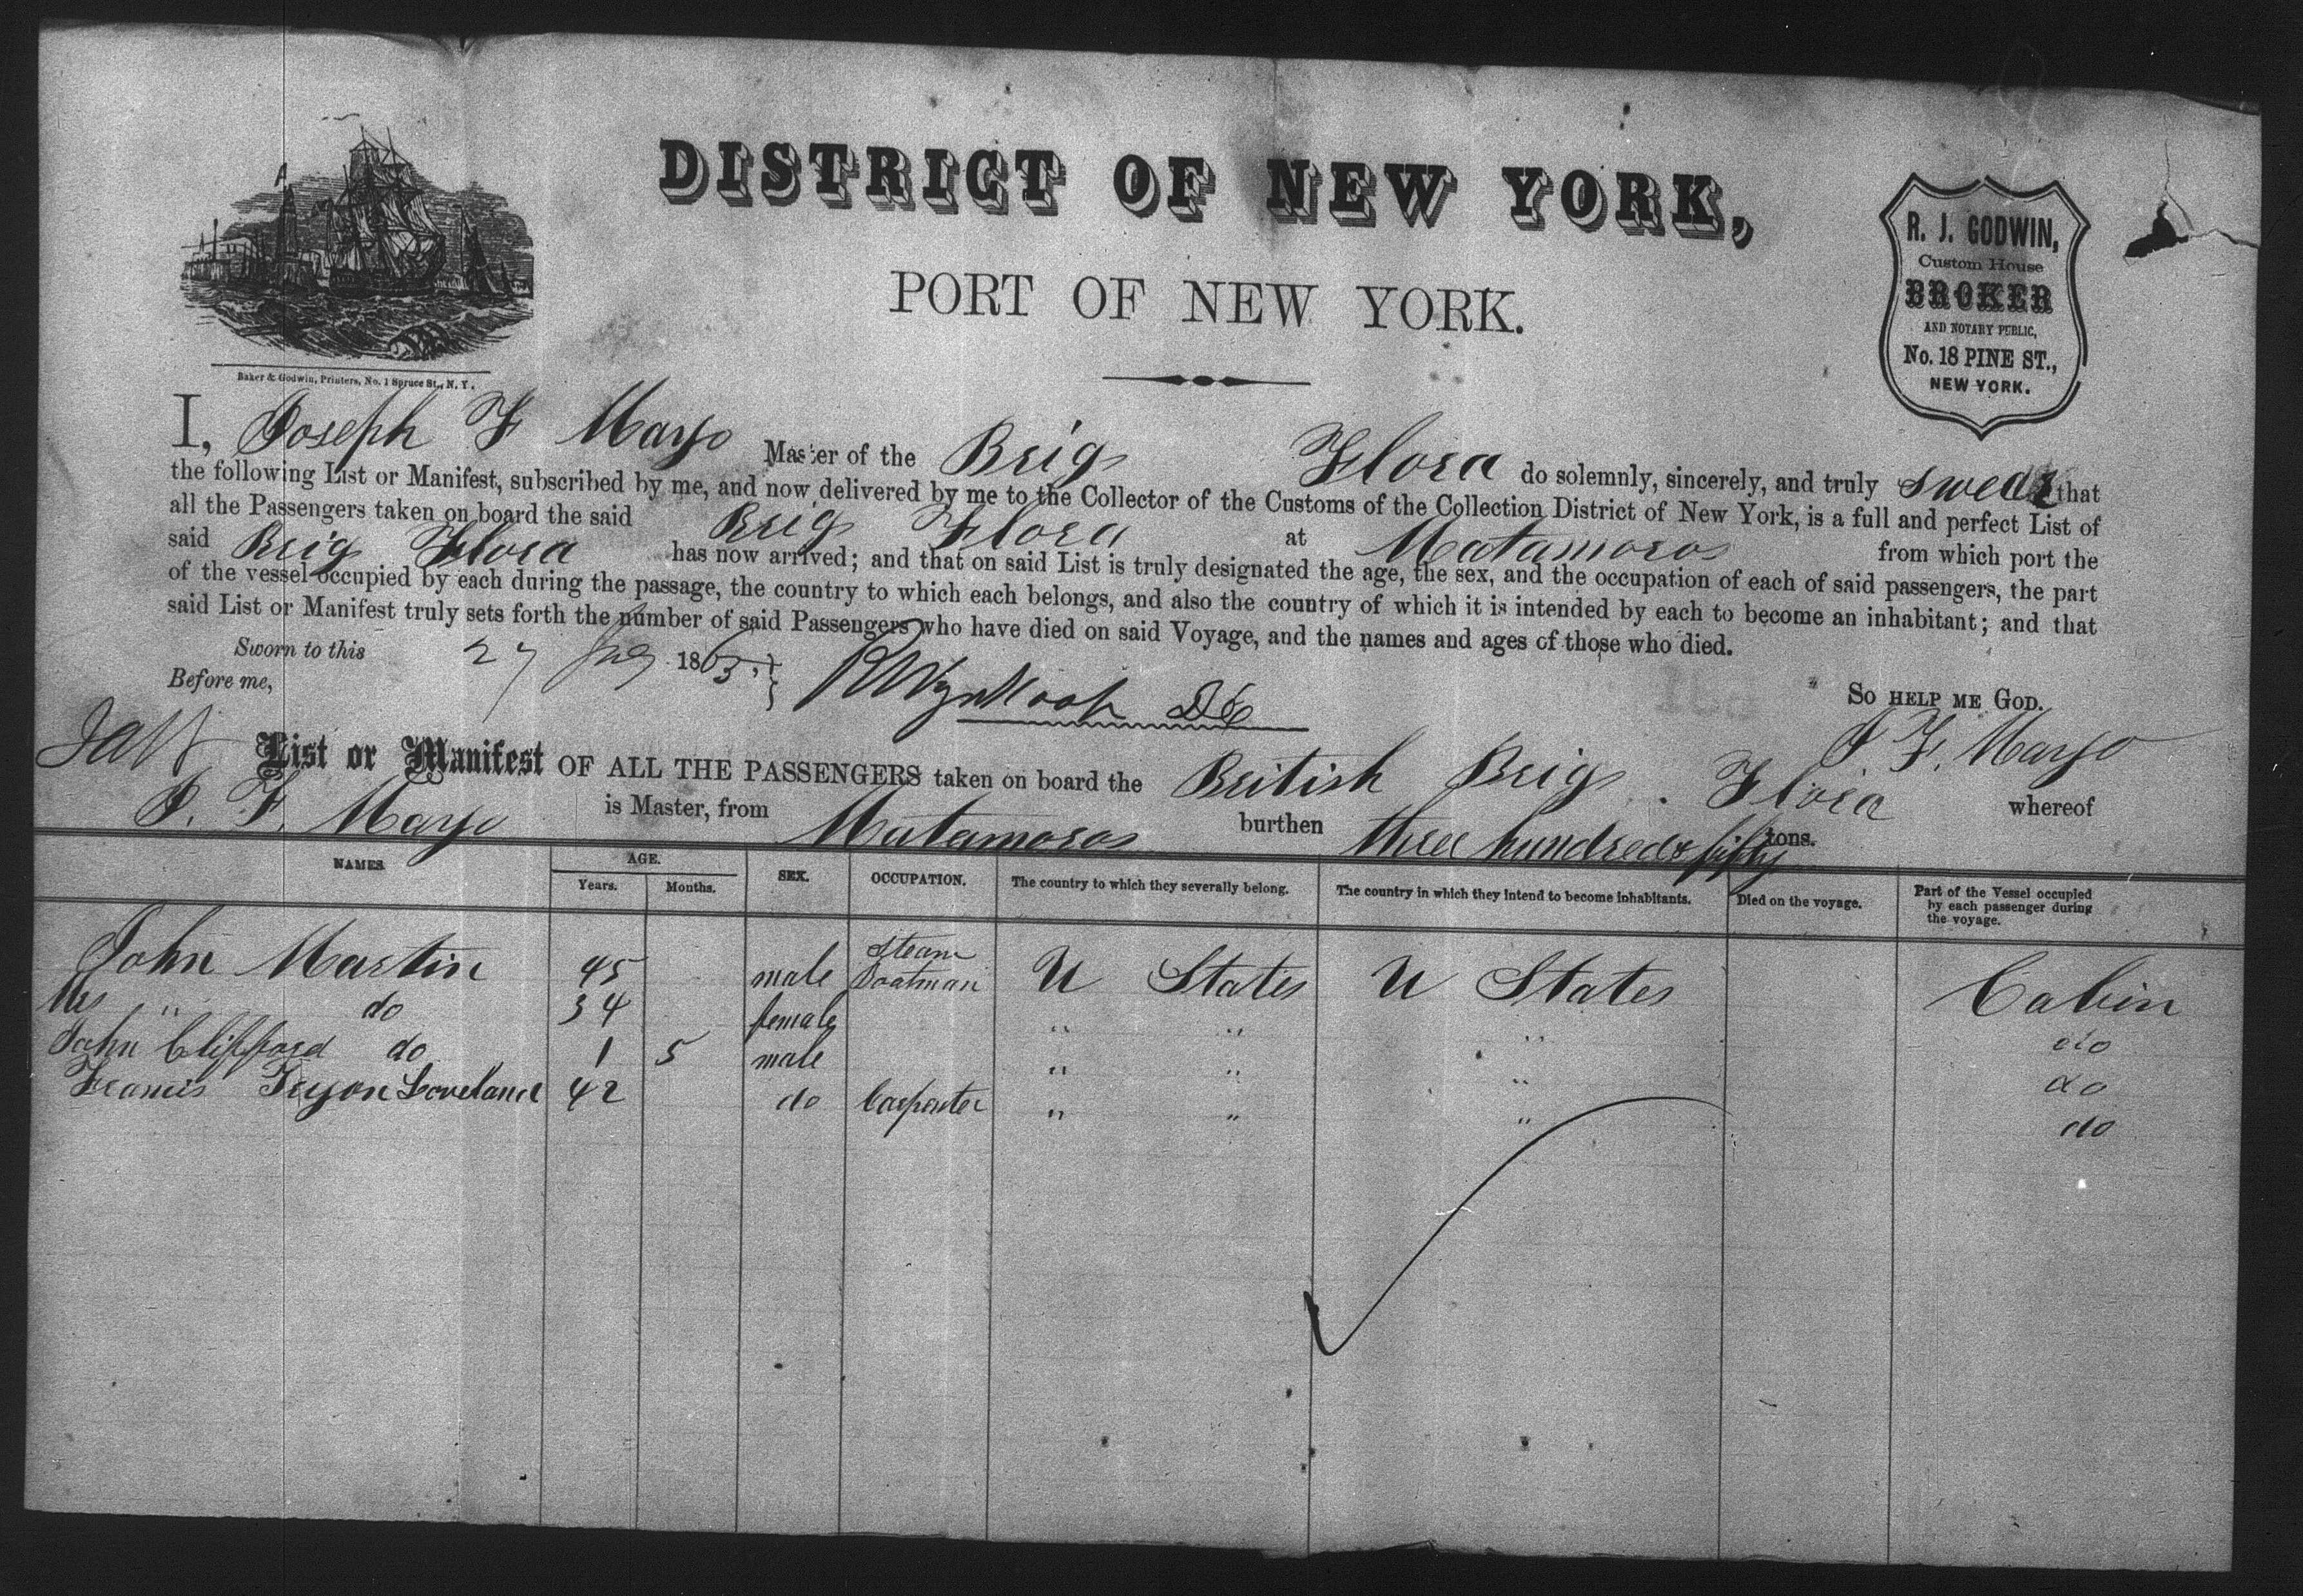 DISTRICT OF NEW YORK,
PORT OF NEW YORK.
R. J. GODWIN,
Custom House
BROKER
AND NOTARY PUBLIC,
No. 18 PINE ST.,
NEW YORK.
Baker & Godwin, Printers, No. 1 Spruce St., N. Y.
I, Joseph F Mayo Master of the Brig Flora do solemnly, sincerely, and truly swear that
the following List or Manifest, subscribed by me, and now delivered by me to the Collector of the Customs of the Collection District of New York, is a full and perfect List of
all the Passengers taken on board the said Brig Flora at Matamoros from which port the
said Brig Flora has now arrived; and that on said List is truly designated the age, the sex, and the occupation of each of said passengers, the part
of the vessel occupied by each during the passage, the country to which each belongs, and also the country of which it is intended by each to become an inhabitant; and that
said List or Manifest truly sets forth the number of said Passengers who have died on said Voyage, and the names and ages of those who died.
Sworn to this 27 1863
Before me,
So HELP ME GOD.
J. F. Mayo
List or Manifest OF ALL THE PASSENGERS taken on board the British Brig Flora whereof
J. F. Mayo is Master, from Matamoros burthen three hundred & fifty tons.
NAMES. AGE. SEX. OCCUPATION. The country to which they severally belong. The country in which they intend to become inhabitants. Died on the voyage. Part of the Vessel occupied by each passenger during the voyage.
Years. Months.
John Martin 45 male Steam Boatman U States U States Cabin
Mrs " do 34 female " " " do
John Clifford do 1 5 male " " " do
Francis Tryon Loveland 42 do Carpenter " " " do